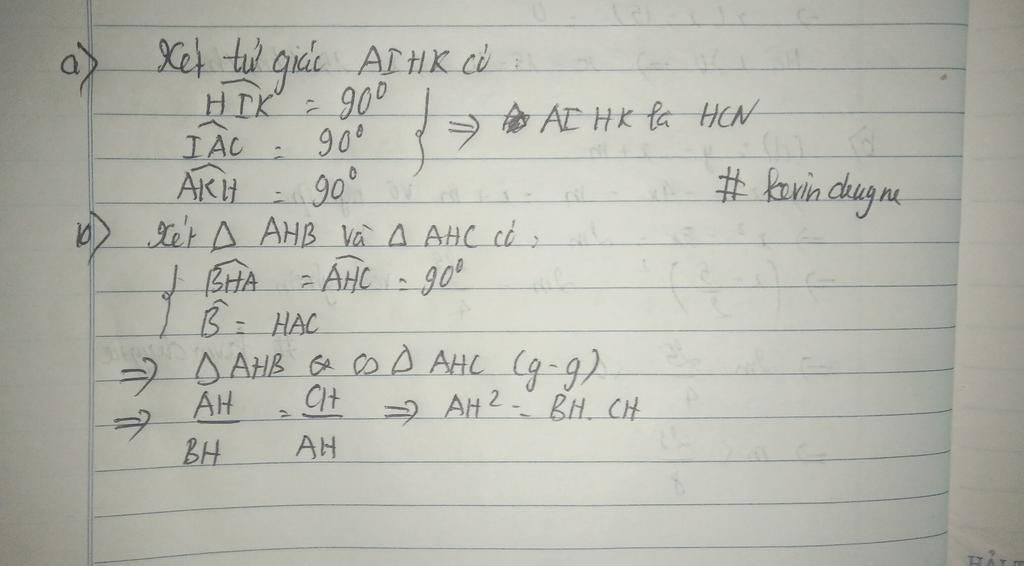 a) Xét tứ giác AIHK có
HIK = 90⁰
IAC = 90⁰ } ⇒ AIHK là HCN
AKH = 90⁰ # kevin
b) Xét Δ AHB và Δ AHC có,
{ BHA = AHC = 90⁰
B = HAC
⇒ Δ AHB ∽ Δ AHC (g-g)
⇒ AH/BH = CH/AH ⇒ AH² = BH. CH